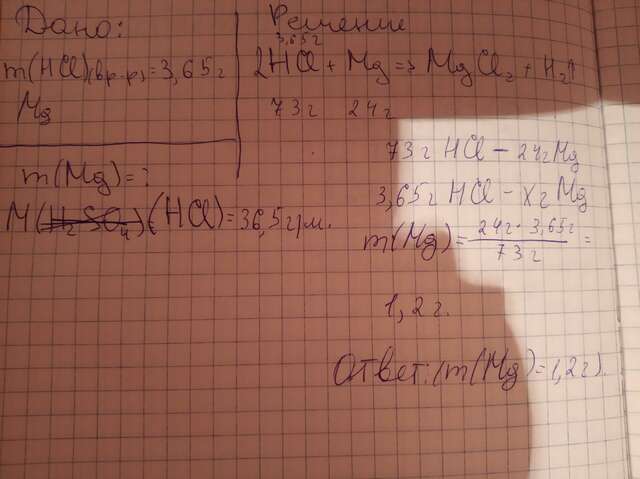 Дано:
m(HCl)(в р-р) = 3,65г
Mg
m(Mg) = ?
M(H₂SO₄)(HCl) = 36,5г/м.
Решение
3,65г
2HCl + Mg => MgCl₂ + H₂↑
73г 24г
73г HCl — 24г Mg
3,65г HCl — Xг Mg
m(Mg) = 24г · 3,65г / 73г =
1,2г.
Ответ: (m(Mg) = 1,2г).